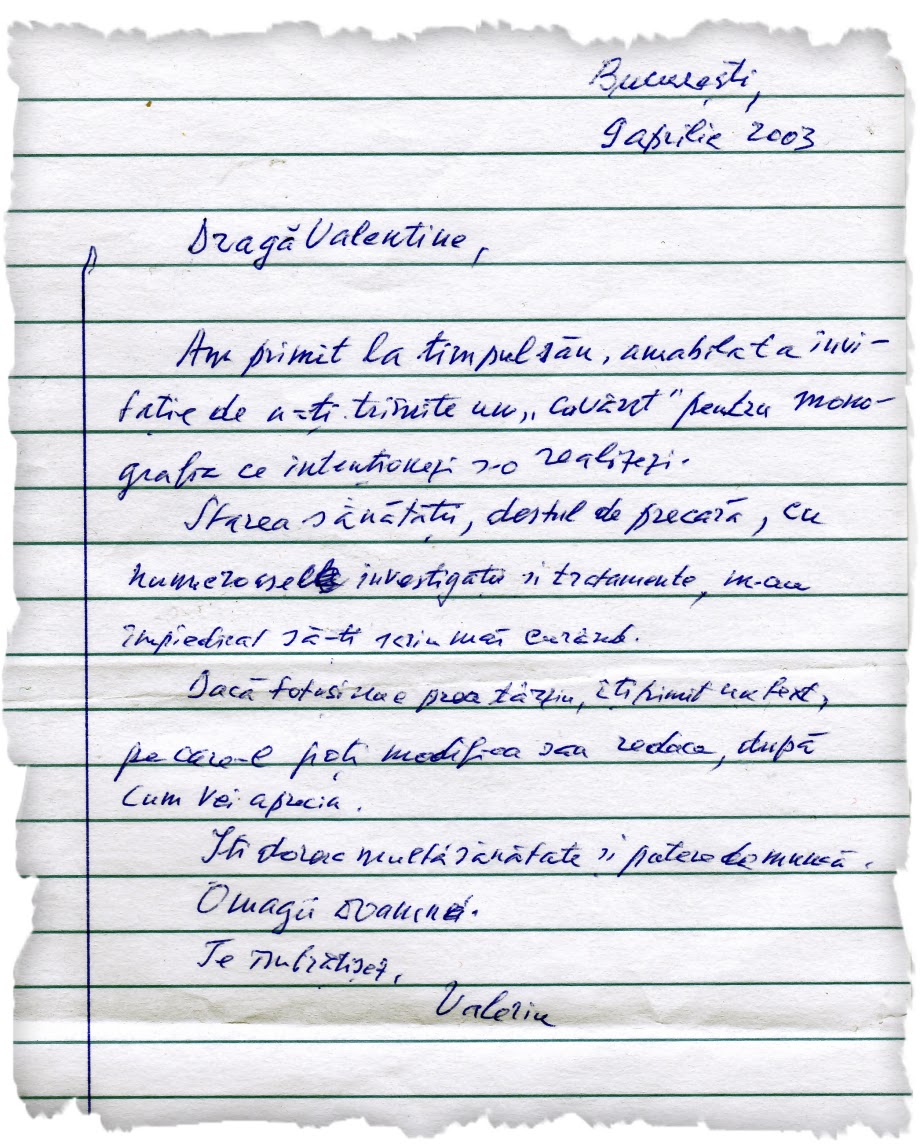 București,
9 aprilie 2003
Dragă Valentine,
Am primit la timpul său, amabila ta invi-
tație de a-ți trimite un „cuvânt" pentru mono-
grafia ce intenționezi s-o realizezi.
Starea sănătății, destul de precară, cu
numeroasele investigații si tratamente, m-au
împiedicat să-ți scriu mai curând.
Dacă totusi nu e prea târziu, îți trimit un text,
pe care-l poți modifica sau reduce, după
cum vei aprecia.
Iti doresc multă sănătate si putere de muncă.
Omagii doamnei.
Te îmbrățișez,
Valeriu